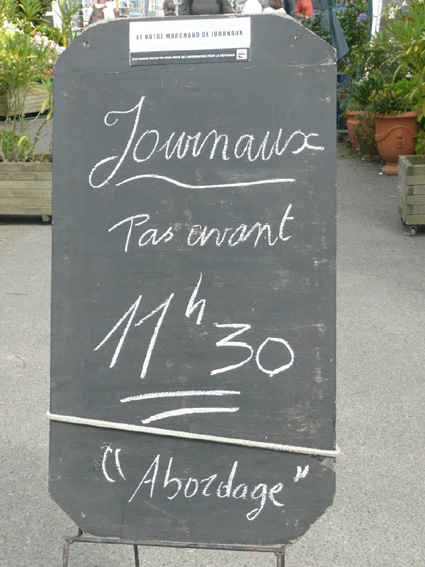 ET VOTRE MARCHAND DE JOURNAUX
Journaux
Pas avant
11h30
"Abordage"